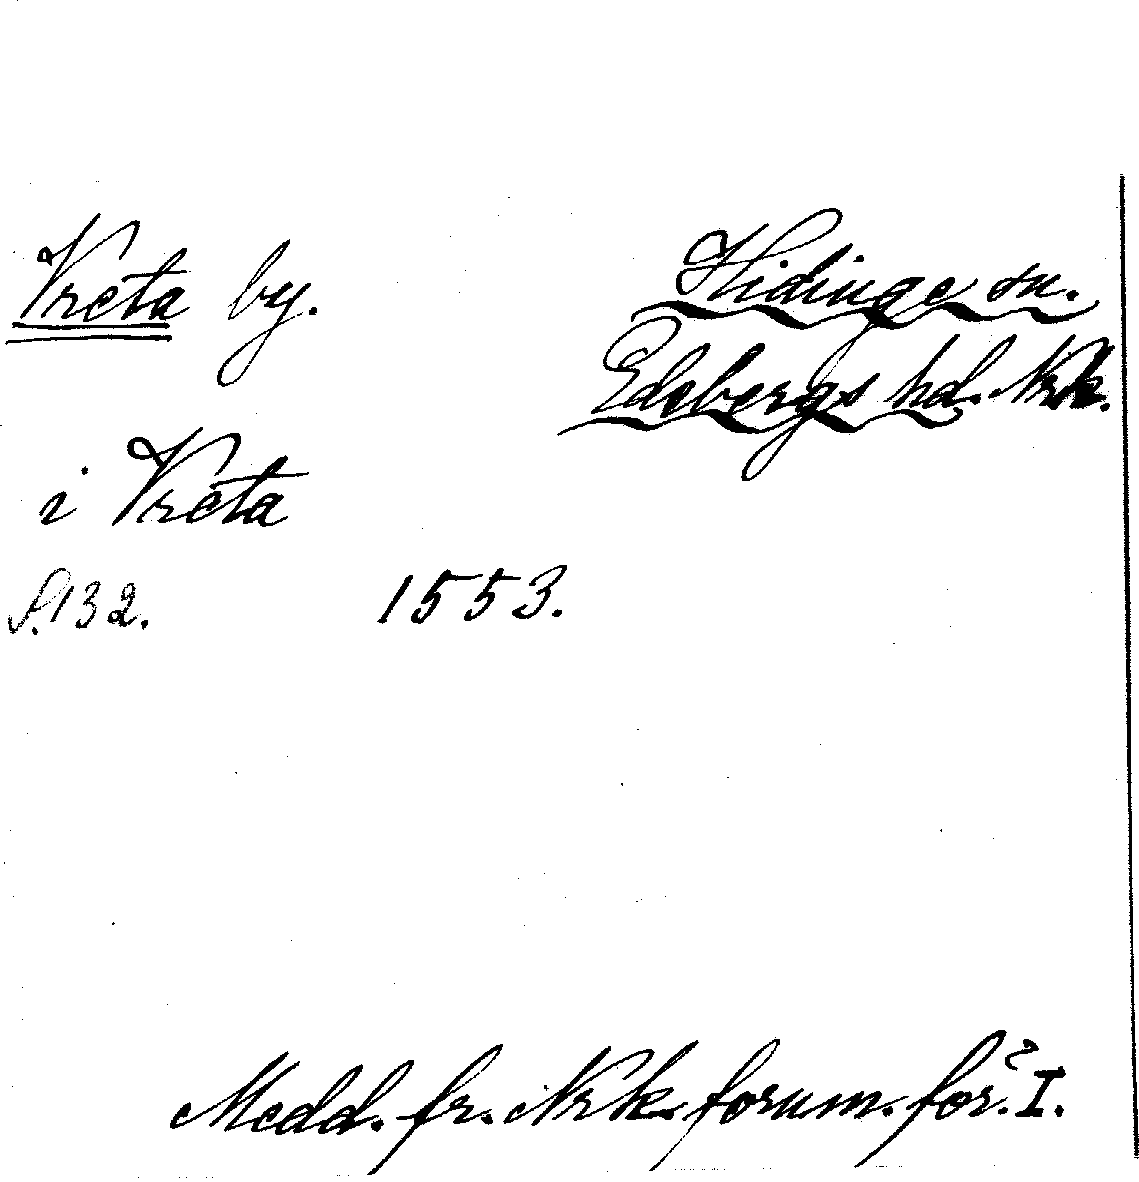 Vreta by.
Hidinge sn.
Edsbergs hd. Nrk.
i Vreta
S. 132. 1553.
Medd. fr. Nrk. fornm. för. I.